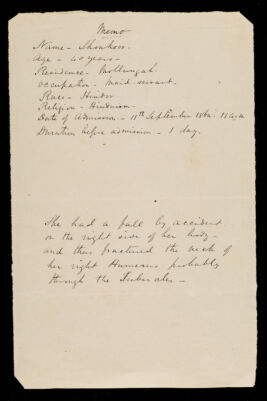 Memo
Name - 
Age - 40 years -
Residence -
Occupation - Maid-servant.
Race - Hindoo
Religion - Hinduism -
Date of Admission - 11th September
Duration before admission - 1 day.
She had a fall by accident
on the right side of her body -
and thus fractured the neck of
her right Humerus probably
through the Tubercles -